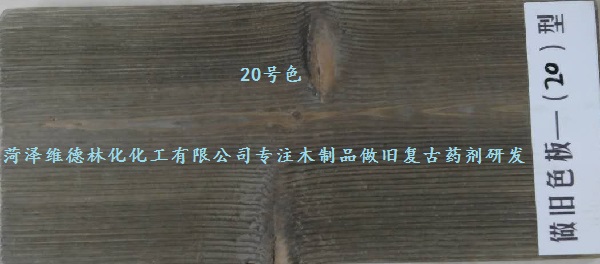 20号色
菏泽维德林化化工有限公司专注木制品做旧复古药剂研发
做旧色板—(20)型